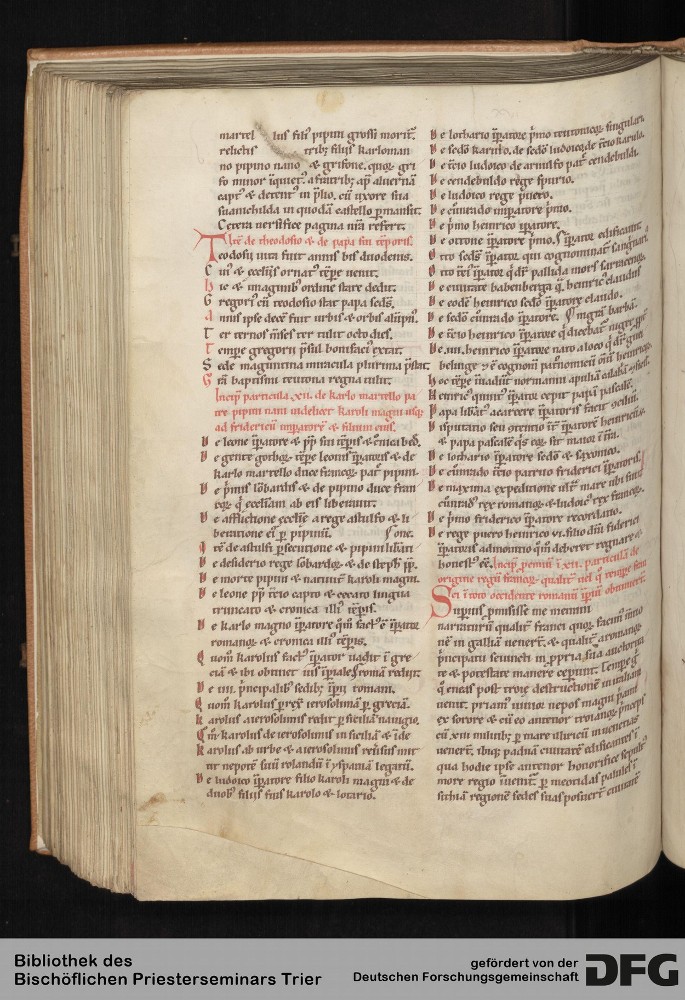 martel lus fili' pipini grossi morit̄.
relictis trib; filijs karloman
no pipino nano & grifone. quoꝝ gri
fo minor iquiet'. a fratrib; ap̄ aluernā
capt' & detent' in p̄lio. cū uxore sua
suanehilda in quodā castello ꝑmansit.
Cetera uersifice pagina nr̄a refert.
Itē de theodosio & de papa sui tēporis.
Teodosij uita fuit annis bis duodenis.
Cui' & ecclijs ornat' tēpe uenit.
Hic & imaginib' ordine stare dedit.
Gregori' cū teodosio stat papa sedēs.
Annis ipse decē fuit urbis & orbis
Ter ternos mēses ter tulit octo dies.
Tempe gregorij p̄sul bonifaci' extat.
Sede maguntina miracula plurima p̄stat
Grā baptismi teutona regna tulit.
Incip̄ particula .XXII. de karlo martello pa
tre pipini nani uidelicet karoli magni usq;
ad fridericū imꝑatorē & filium eius.
De leone īꝑatore & pp̄ sui tēpis &
De gente gothoꝝ tēpe leonis īꝑatoris & de
karlo martello duce francoꝝ patr̄ pipini.
De p̄mis lōbardis & de pipino duce fran
coꝝ q̄ eccliam ab eis liberauit.
De afflictione ecclie a rege astulfo & li
beratione ei' ꝑ pipinū. one.
Itē de astulfi ꝑsecutione & pipini libati
De desiderio rege lōbardoꝝ & de steph̄ pp̄.
De morte pipini & natiuit̄ karoli magni.
De leone pp̄ t̄cio capto & cecato lingua
truncato & cronica illi' tēpis.
De karlo magno īꝑatore q̄m fact' ē īꝑator
romanoꝝ & cronica illi' tēpis.
Quom̄ karolus fact' īꝑator uadit ī gre
ciā & ibi obtinet ius īꝑiale romā redijt.
De .iiii. p̄ncipalib' sedib; īꝑii romani.
Quom̄ karolus ꝑrex̄ ierosolimā ꝑ greciā.
Karolus a ierosolimis redit ꝑ siciliā nauigio.
Qm̄ karolus de ierosolimis in siciliā & īde
Karolus ab urbe & a ierosolimis reūsus mit
tit nepotē suū rolandū ī yspaniā legatū.
De ludoico īꝑatore filio karoli magni & de
duob' filijs suis karolo & lotario.
De lothario īꝑatore p̄mo teutonicoꝝ singulari
De sc̄do karulo. de sc̄do ludoico. de t̄cio karulo.
De t̄cio ludoico de arnulfo patr̄ cendebuldi.
De cendebuldo rege spurio.
De ludoico rege puero.
De cūrado imꝑatore p̄mo.
De p̄mo heinrico īꝑatore.
De ottone īꝑatore p̄mo. īꝑator edificauit
Otto sc̄ds īꝑator qui cognominat̄ sanguinari'
Otto t̄ci' īꝑator q̄ dr̄ pallida mors sarracenoꝝ
De ciuitate babenberga q̄ heinric' claudus
De eodē heinrico sc̄do īꝑatore claudo.
De sc̄do cūrado īꝑatore. nigra barbā.
De t̄cio heinrico īꝑatore q̄ dicebat̄ niger
De .iiii. heinrico īꝑatore nato a loco q̄ dr̄
Hoc tēpe īuadūt normanni apuliā calabriā & sicilia
Heinric' quint' īꝑator cepit papā pascalē.
Papa libat' a carcere īꝑatoris facit
Disputatio seu int̄ īꝑatorē heinricū
& papā pascalē q̄s eoꝝ sit maior
De lothario īꝑatore sc̄do & saxonico.
De cūrado t̄cio patruo friderici īꝑatoris.
De maxima expeditione ult̄ mare ubi fuit
cūrad' rex romanoꝝ & ludoic' rex francoꝝ
De p̄mo friderico īꝑatore recordatio.
De rege puero heinrico .vi. filio dn̄i friderici
īꝑatoris admonitio qm̄ deberet regnare &
honest' eē. Incip̄ pemiū ī .XII. particulā de
origine regū francoꝝ qualit̄ uel q̄ tempe
Suꝑius ꝑmisisse me memini
narraturū qualit̄ franci
nē in galliā uenerīt. & qualit̄ a romanoꝝ
p̄ncipatu seiuncti in ꝓpria sua auctorita
te & potestate manere ceperunt. Tempe
q̄ eneas post troie destructionē in italiam
uenit. priam' iunior nepos magni priami
ex sorore & cū eo antenor troianoꝝ p̄nceps
cū .xii. milib; ꝑ mare illiricū in uenetias
uenerīt. ibiq; paduā ciuitatē edificantes ī
qua hodie ipse antenor honorifice sepult'
more regio īuenit̄. ꝑ meotidas paludes ī
scithiā regionē sedes suas posuerīt ciuitatē
Bibliothek des
Bischöflichen Priesterseminars Trier
gefördert von der
Deutschen Forschungsgemeinschaft
DFG